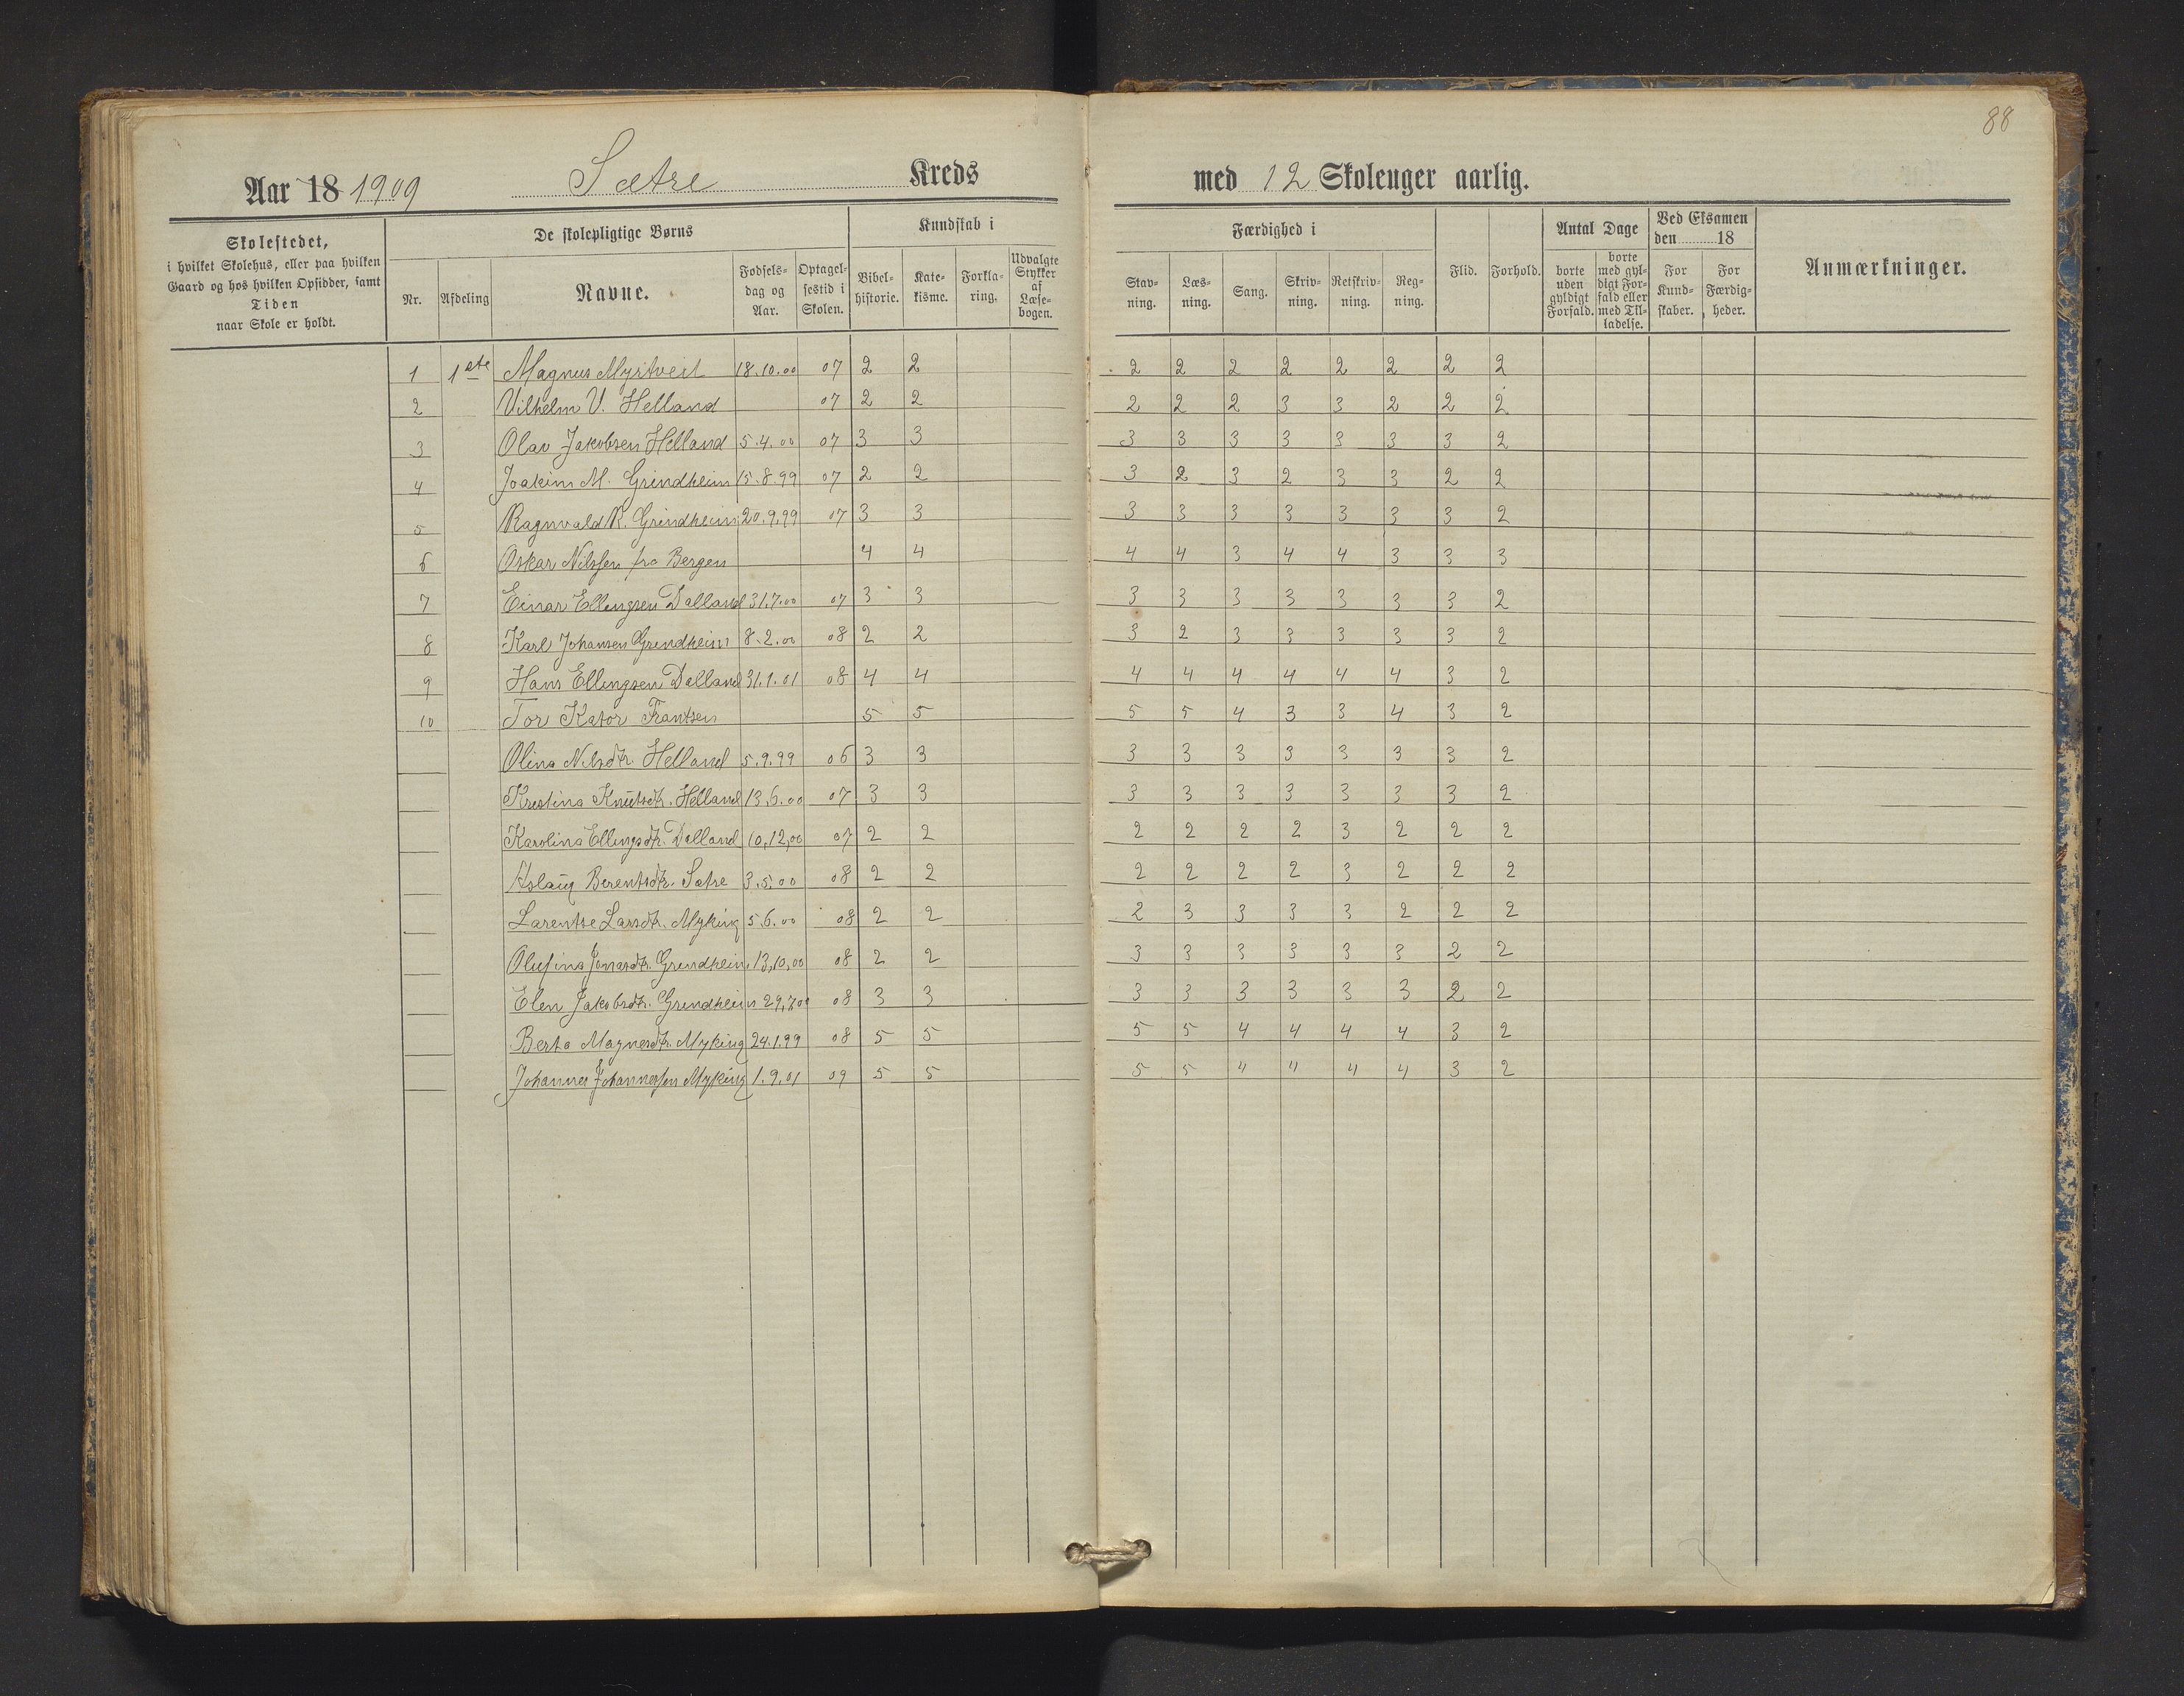 88
Aar 18 1909 Sætre Kreds med 12 Skoleuger aarlig.
Skolestedet, i hvilket Skolehus, eller paa hvilken Gaard og hos hvilken Opsidder, samt Tiden naar Skole er holdt.
De skolepligtige Børns
Kundskab i
Færdighed i
Antal Dage
Ved Eksamen den 18
Nr. Afdeling Navne. Fødselsdag og Aar. Optagelsestid i Skolen. Bibelhistorie. Katekisme. Forklaring. Udvalgte Stykker af Læsebogen. Stavning. Læsning. Sang. Skrivning. Retskrivning. Regning. Flid. Forhold. borte uden gyldigt Forfald. borte med gyldigt Forfald eller med Tilladelse. For Kundskaber. For Færdigheder. Anmærkninger.
1 1ste Magnus Myrtveit 18.10.00 07 2 2 2 2 2 2 2 2 2 2
2 Vilhelm V. Helland 07 2 2 2 2 2 3 3 2 2 2
3 Olav Jakobsen Helland 5.4.00 07 3 3 3 3 3 3 3 3 3 2
4 Joakim M. Grindheim 15.8.99 07 2 2 3 2 3 2 3 3 2 2
5 Ragnvald K. Grindheim 20.9.99 07 3 3 3 3 3 3 3 3 3 2
6 Oskar Nilssen fra Bergen 4 4 4 4 3 4 4 3 3 3
7 Einar Ellingsen Dalland 31.7.00 07 3 3 3 3 3 3 3 3 3 2
8 Karl Johansen Grindheim 8.2.00 08 2 2 3 2 3 3 3 3 3 2
9 Hans Ellingsen Dalland 31.1.01 08 4 4 4 4 4 4 4 4 3 2
10 Tor Kator Frantsen 5 5 5 5 4 3 3 4 3 2
Olina Nilsdtr. Helland 5.9.99 06 3 3 3 3 3 3 3 3 3 2
Kristina Knutsdtr. Helland 13.6.00 07 3 3 3 3 3 3 3 3 3 2
Karolina Ellingsdtr. Dalland 10,12,00 07 2 2 2 2 2 2 3 2 2 2
Aslaug Berentsdtr. Sætre 3.5.00 08 2 2 2 2 2 2 3 2 2 2
Larentse Larsdtr. Myking 5.6.00 08 2 2 2 3 3 3 3 2 2 2
Olufina Jonasdtr. Grindheim 13,10,00 08 2 2 3 3 3 3 3 3 2 2
Elen Jakobsdtr. Grindheim 29,7,00 08 3 3 3 3 3 3 3 3 2 2
Berta Magnesdtr. Myking 24.1.99 08 5 5 5 5 4 4 4 4 3 2
Johannes Johannessen Myking 1.9.01 09 5 5 5 5 4 4 4 4 3 2